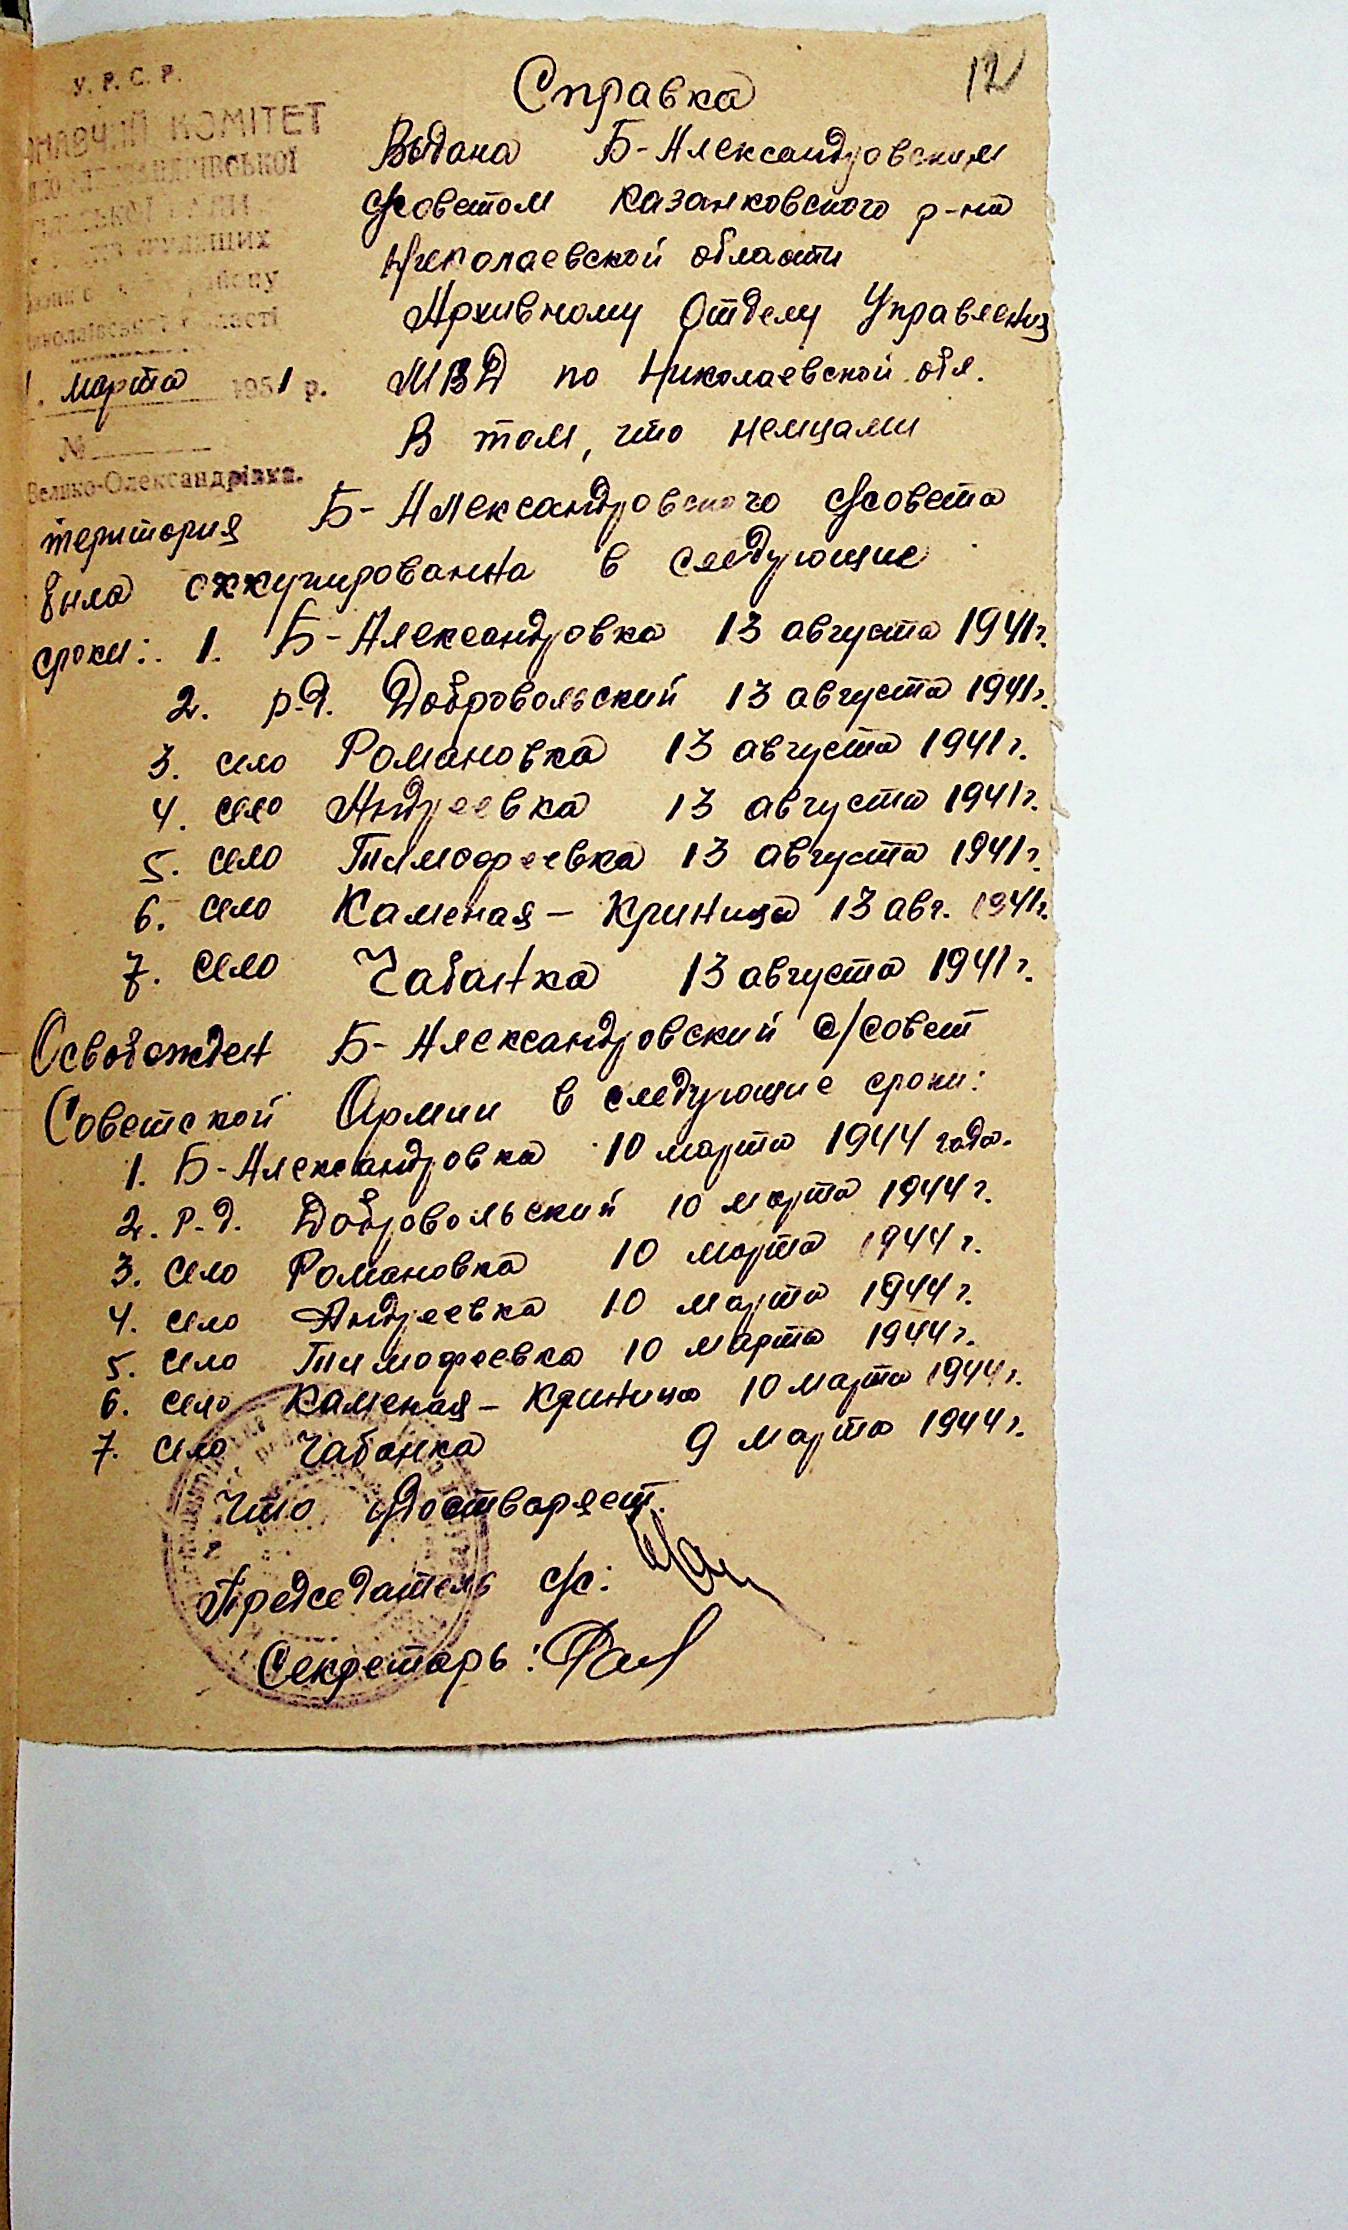 12
У. Р. С. Р.
КОМІТЕТ
району
області
марта 1951 р.
№
Велико-Олександрівка.
Справка
Выдана Б-Александровским
с/советом Казанковского р-на
Николаевской области
Архивному Отделу Управления
МВД по Николаевской обл.
В том, что немцами
територия Б-Александровского с/совета
была оккупированна в следующие
сроки: 1. Б-Александровка 13 августа 1941 г.
2. р.д. Добровольский 13 августа 1941 г.
3. село Романовка 13 августа 1941 г.
4. село Андреевка 13 августа 1941 г.
5. село Тимофеевка 13 августа 1941 г.
6. село Каменая – Криница 13 авг. 1941 г.
7. село Чабанка 13 августа 1941 г.
Освобожден Б-Александровский с/совет
Советской Армии в следующие сроки:
1. Б-Александровка 10 марта 1944 года.
2. р.д. Добровольский 10 марта 1944 г.
3. село Романовка 10 марта 1944 г.
4. село Андреевка 10 марта 1944 г.
5. село Тимофеевка 10 марта 1944 г.
6. село Каменая – Криница 10 марта 1944 г.
7. село Чабанка 9 марта 1944 г.
Что удостваряет.
Председатель с/с:
Секретарь: